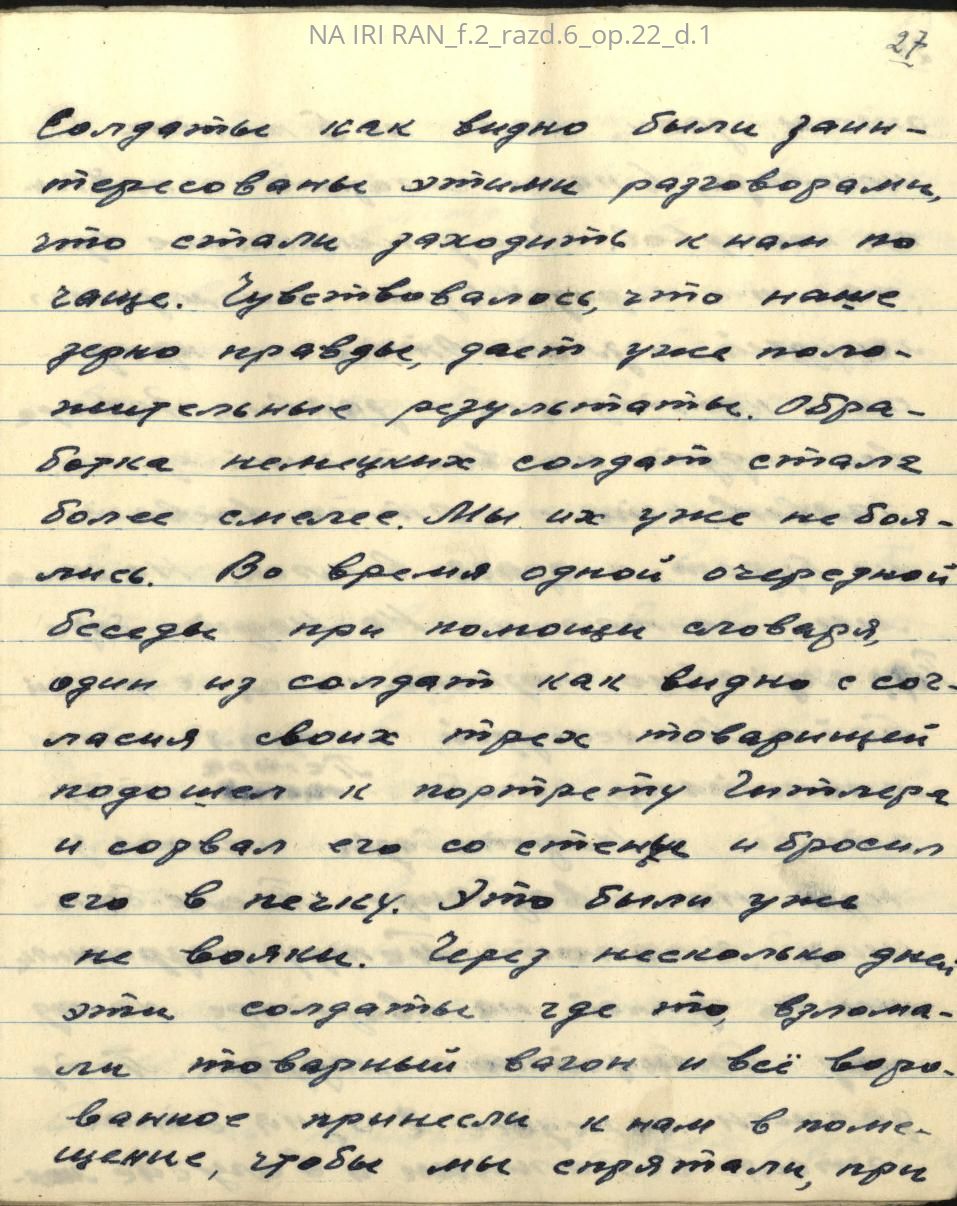 NA IRI RAN_f.2_razd.6_op.22_d.1
27
Солдаты как видно были заин-
тересованы этими разговорами,
что стали заходить к нам по
чаще. Чувствовалось, что наше
зерно правды, дает уже поло-
жительные результаты. Обра-
ботка немецких солдат стала
более смелее. Мы их уже не боя-
лись. Во время одной очередной
беседы при помощи словаря,
один из солдат как видно с сог-
ласия своих трех товарищей
подошел к портрету Гитлера
и сорвал его со стены и бросил
его в печку. Это были уже
не вояки. Через несколько дней
эти солдаты где то, взлома-
ли товарный вагон и всё воро-
ванное принесли к нам в поме-
щение, чтобы мы спрятали, при